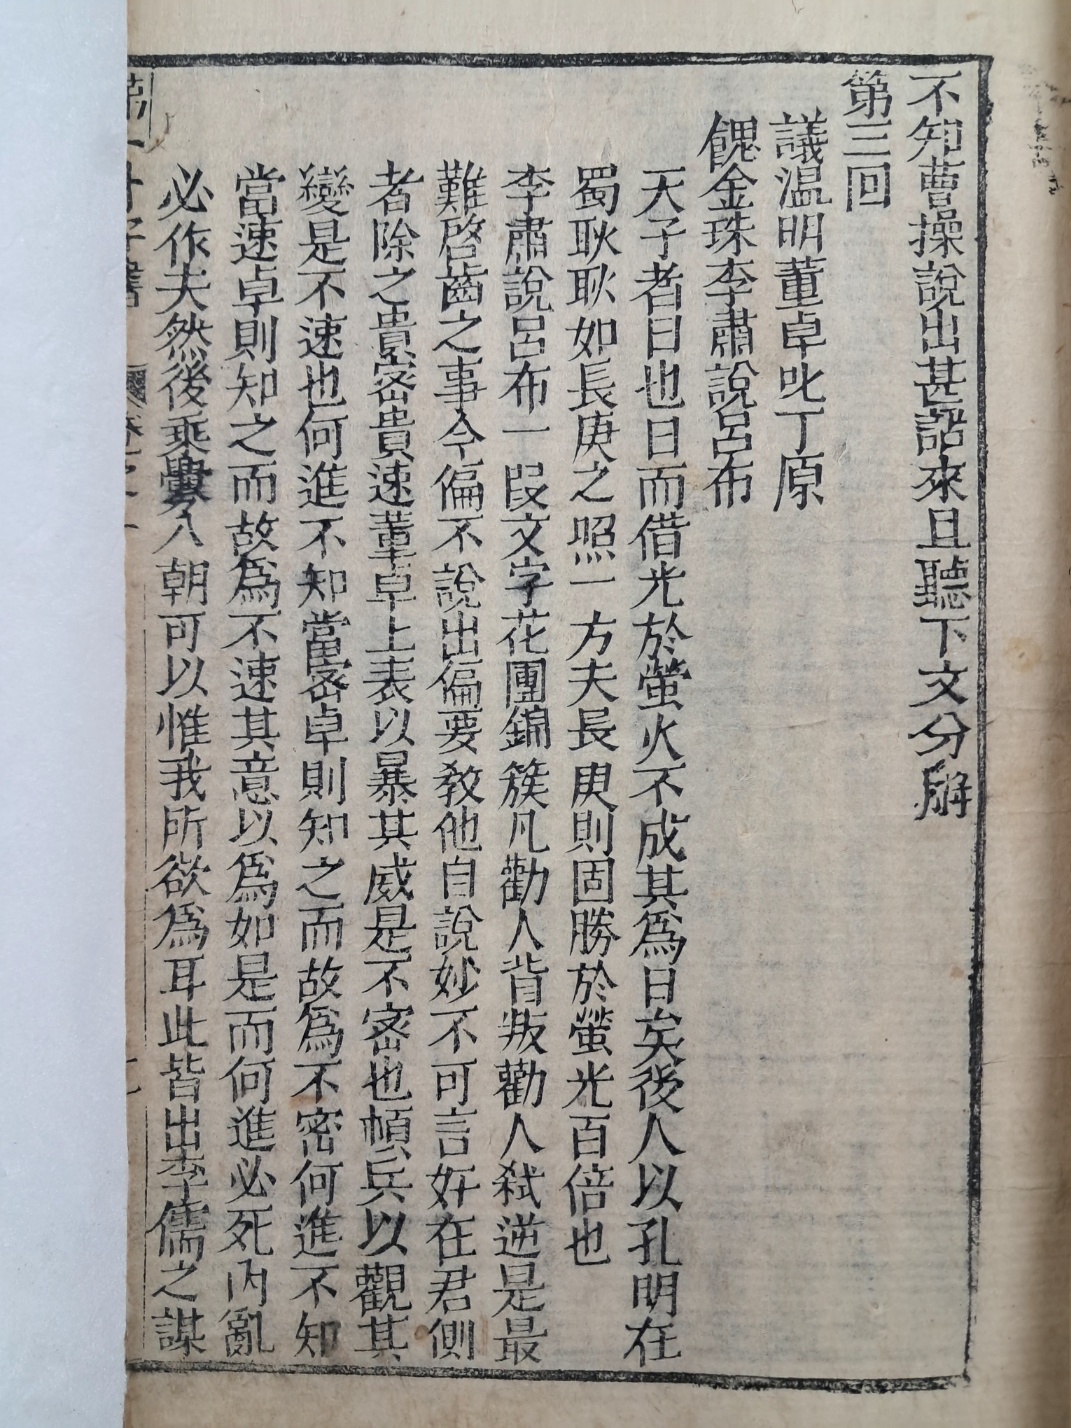 不知曹操說出甚話來且聽下文分解
第三回
議溫明董卓叱丁原
餽金珠李肅說呂布
天子者日也日而借光於螢火不成其為日矣後人以孔明在
蜀耿耿如長庚之照一方夫長庚則固勝於螢光百倍也
李肅說呂布一段文字花團錦簇凡勸人背叛勸人弒逆是最
難啓齒之事今偏不說出偏要教他自說妙不可言好在君側
者除之貴密貴速董卓上表以暴其威是不密也頓兵以觀其
變是不速也何進不知當密卓則知之而故為不密何進不知
當速卓則知之而故為不速其意以為如是而何進必死內亂
必作夫然後乘釁入朝可以惟我所欲為耳此皆出李儒之謀
第一才子書 卷之一